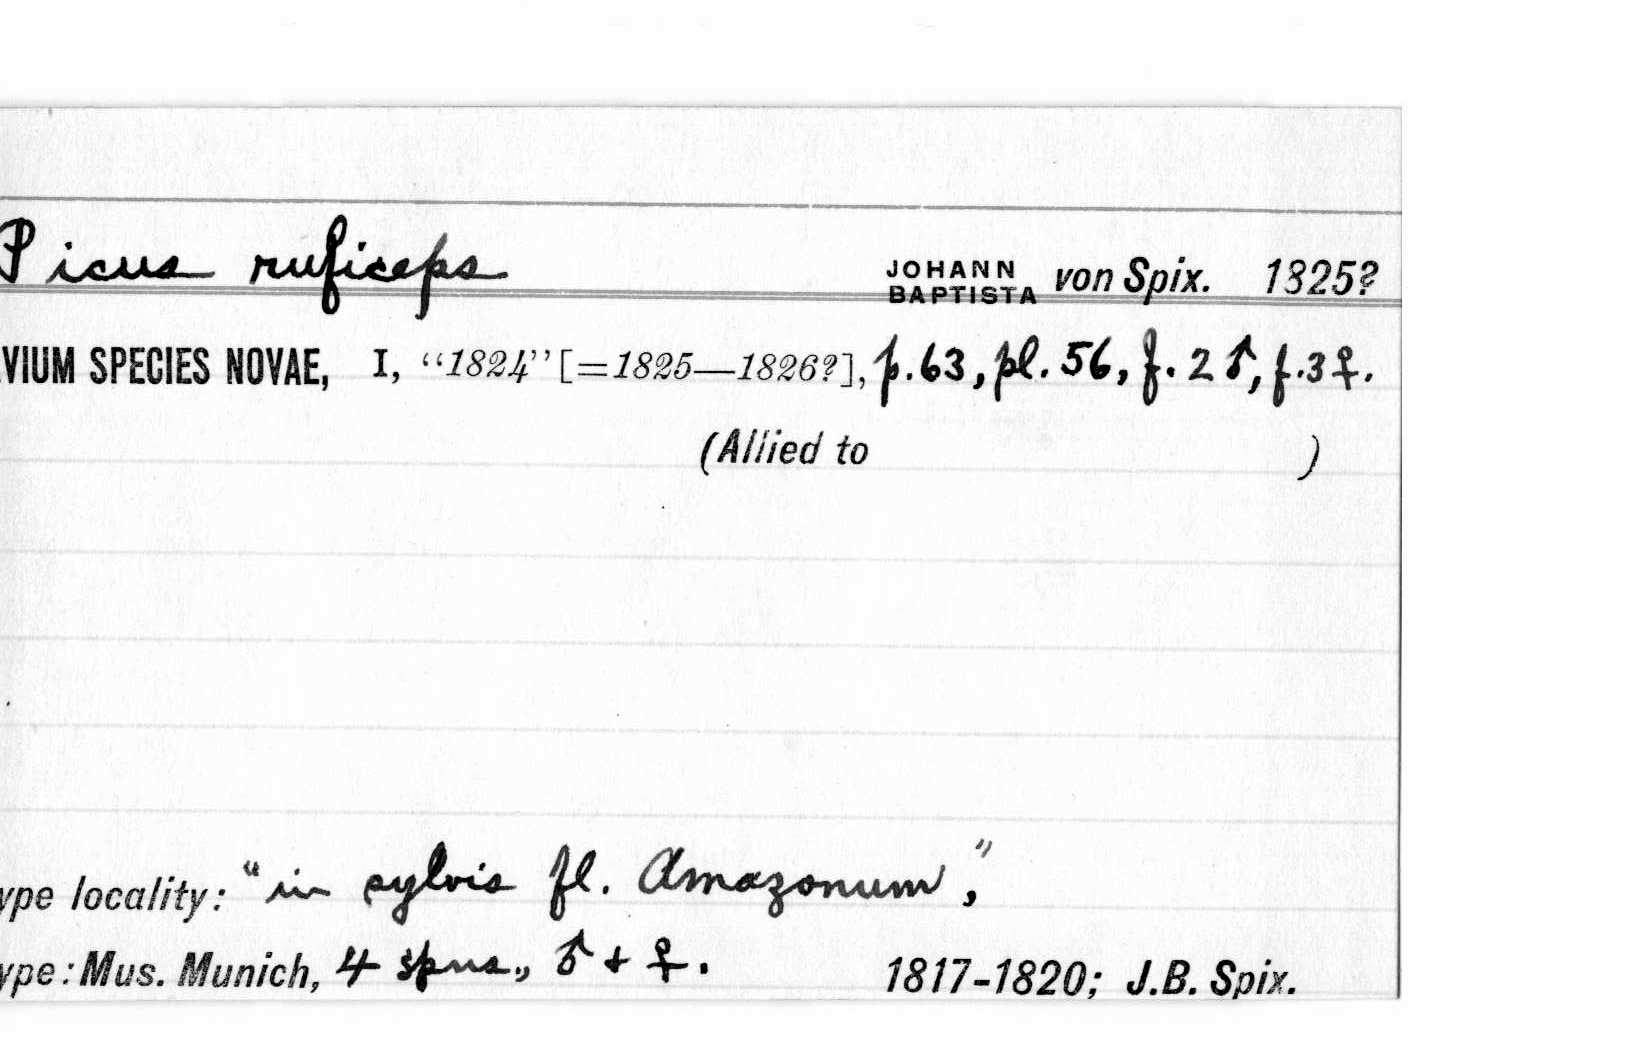 Picus ruficeps JOHANN BAPTISTA von Spix. 1825?
VIUM SPECIES NOVAE, I, “1824” [=1825—1826?], p.63, pl. 56, f. 2 ♂, f. 3 ♀.
(Allied to )
ype locality: “in sylvis fl. Amazonum,”
ype: Mus. Munich, 4 spns., ♂ + ♀. 1817-1820; J.B. Spix.